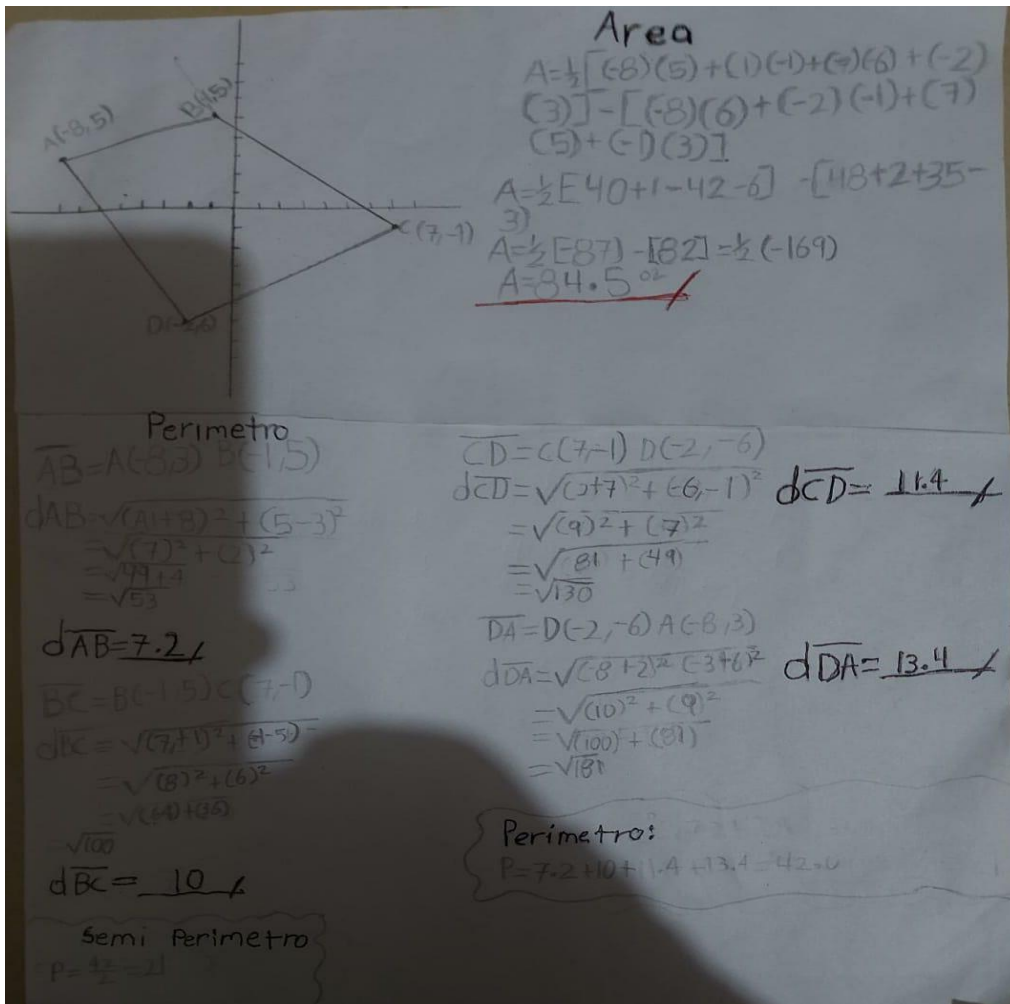 A(-8,5)
B(-1,5)
C(7,-1)
D(-2,6)
Area
A=½[(-8)(5)+(1)(-1)+(-7)(6)+(-2)
(3)]-[(-8)(6)+(-2)(-1)+(7)
(5)+(-1)(3)]
A=½[40+1-42-6] -[48+2+35-
3)
A=½[-87]-[82]=½(-169)
A=84.5
Perimetro
AB=A(-8,3) B(-1,5)
dAB=√(A1+8)²+(5-3)²
=√(7)²+(2)²
=√49+4
=√53
dAB=7.2
BC=B(-1,5)C(7,-1)
dBC=√(7,+1)²+(-1-5)
=√(8)²+(6)²
=√(64)+(36)
=√100
dBC=10
Semi Perimetro
P=42/2=21
CD=C(7,-1) D(-2,-6)
dCD=√(2+7)²+(-6,-1)²
=√(9)²+(7)²
=√(81)+(49)
=√130
dCD=11.4
DA=D(-2,-6)A(-8,3)
dDA=√(-8+2)²(-3+6)²
=√(10)²+(9)²
=√(100)+(81)
=√181
dDA=13.4
Perímetro:
P=7.2+10+11.4+13.4=42.0